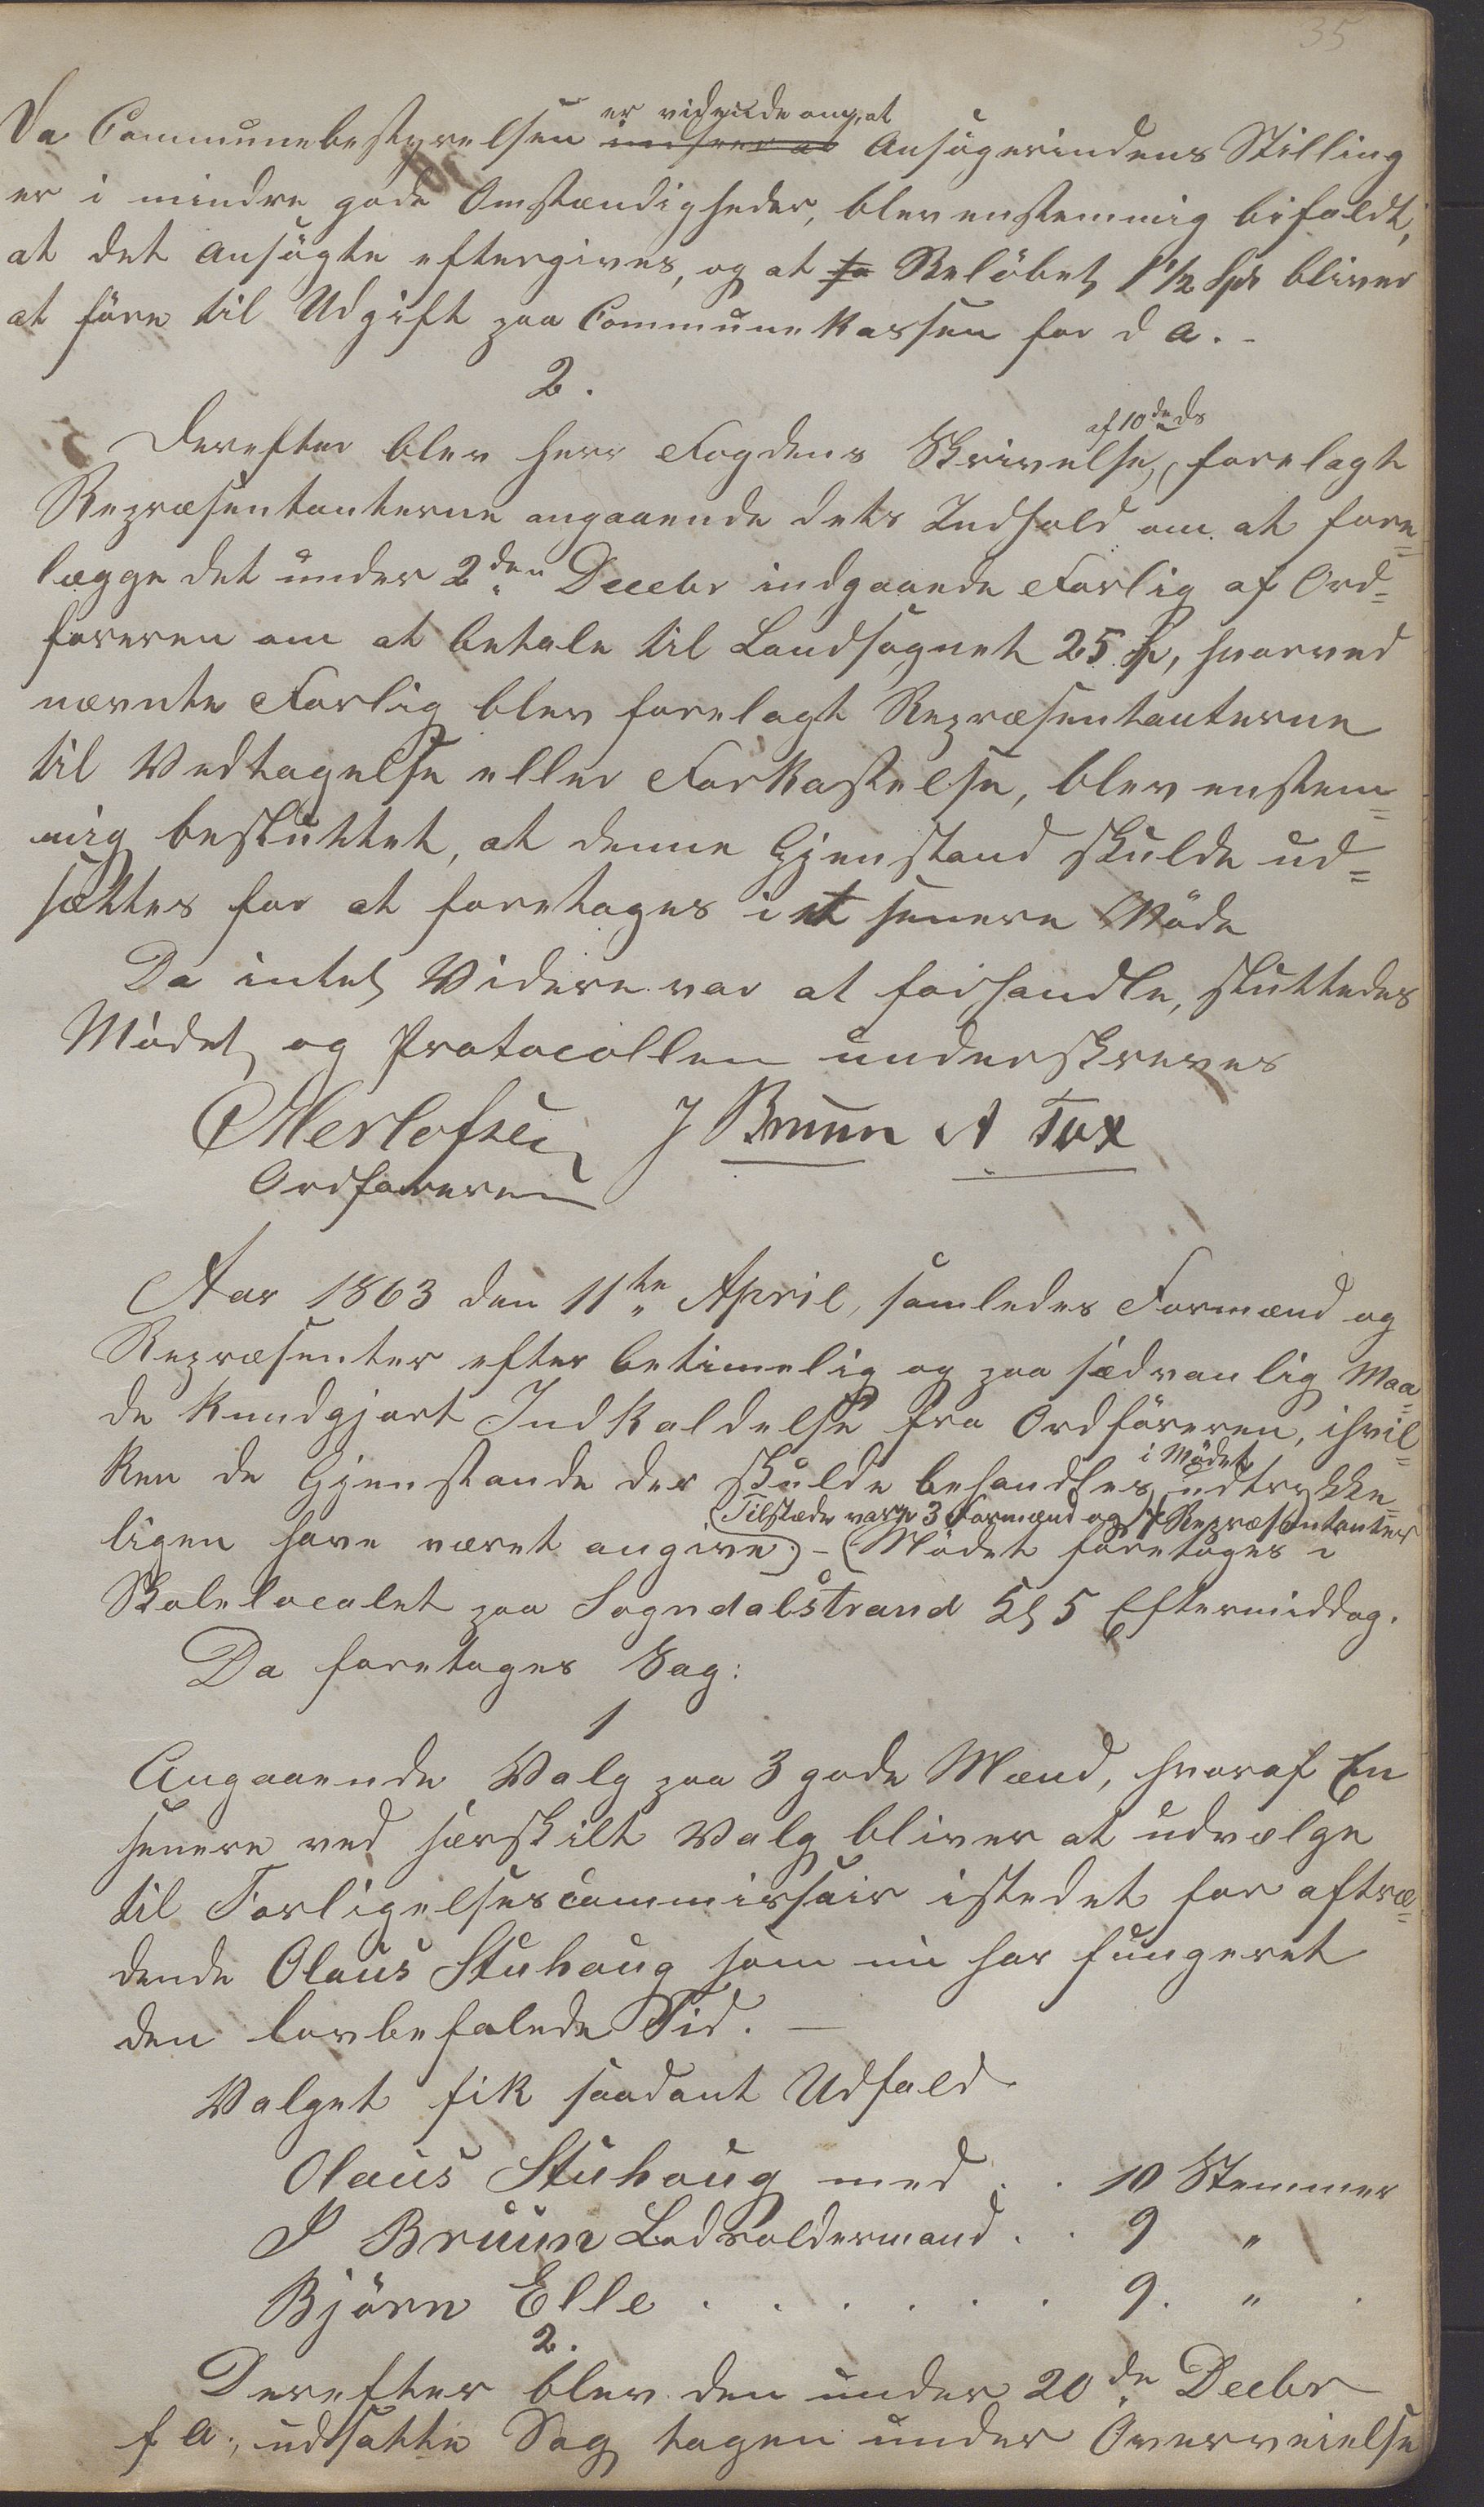 35
Da Communebestyrelsen er vidende om, at Ansøgerindens Stilling
er i mindre gode Omstændigheder, blev enstemmig bifaldt,
at det Ansøgte eftergives, og at Beløbet, 1 1/2 Spd bliver
at føre til Udgift paa Communekassen for d A. -
2.
Derefter blev Herr Fogdens Skrivelse, af 10de ds forelagt
Repræsentanterne angaaende dets Indhold om at fore=
lægge det under 2den Decebr indgaaede Forlig af Ord=
føreren om at betale til Landsognet 25 Sp, hvorved
nævnte Forlig blev forelagt Repræsentanterne
til Vedtagelse eller Forkastelse, blev enstem=
mig besluttet, at denne Gjenstand skulde ud=
sættes for at foretages i et senere Møde
Da intet Videre var at forhandle, sluttedes
Mødet, og Protocollen underskreves
J Bruun A Tox
Ordføreren
Aar 1863 den 11te April, samledes Formænd og
Repræsenter efter betimelig og paa sædvanlig Maa=
de kundgjort Indkaldelse fra Ordføreren, ihvil=
ken de Gjenstande der skulde behandles i Mødet udtrykke=
(Tilstæde vare 3 Formænd og 7 Repræsentanter
ligen have været angivne) - (Mødet foretoges i
Skolelocalet paa Sogndalstrand Kl 5 Eftermiddag.
Da foretoges Sag:
1
Angaaende Valg paa 3 gode Mænd, hvoraf En
senere ved særskilt Valg bliver at udvælge
til Forligelsescommissair istedet for aftræ=
dende Olaus Stuhaug som nu har fungeret
den lovbefalede Tid. —
Valget fik saadant Udfald
Olaus Stuhaug med . . 10 Stemmer
J Bruun Lodsoldermand . . 9 "
Bjørn Elle . . . . . . 9. " .
2.
Derefter blev den under 20de Decbr
f A., udsatte Sag tagen under Overveielse